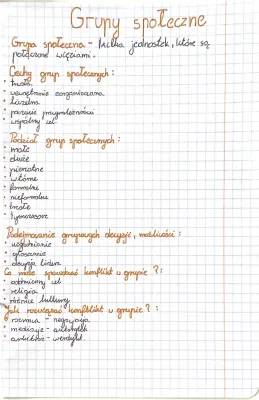 Grupy społeczne
Grupa społeczna - kilka jednostek, które są
połączone więziami.
Cechy grup społecznych:
• trwała
• wewnętrznie zorganizowana
• liczebna
• poczucie przynależności
• wspólny cel
Podział grup społecznych:
• małe
• duże
• pierwotne
• wtórne
• formalne
• nieformalne
• trwałe
• tymczasowe
Podejmowanie grupowych decyzji, możliwości:
• uzgadnianie
• głosowanie
• decyzja lidera
Co może spowodować konflikt w grupie?:
• odmienny cel
• religia
• różnice kultury
Jak rozwiązać konflikt w grupie?:
• rozmowa - negocjacja
• mediacje -
• arbitraż - werdykt.